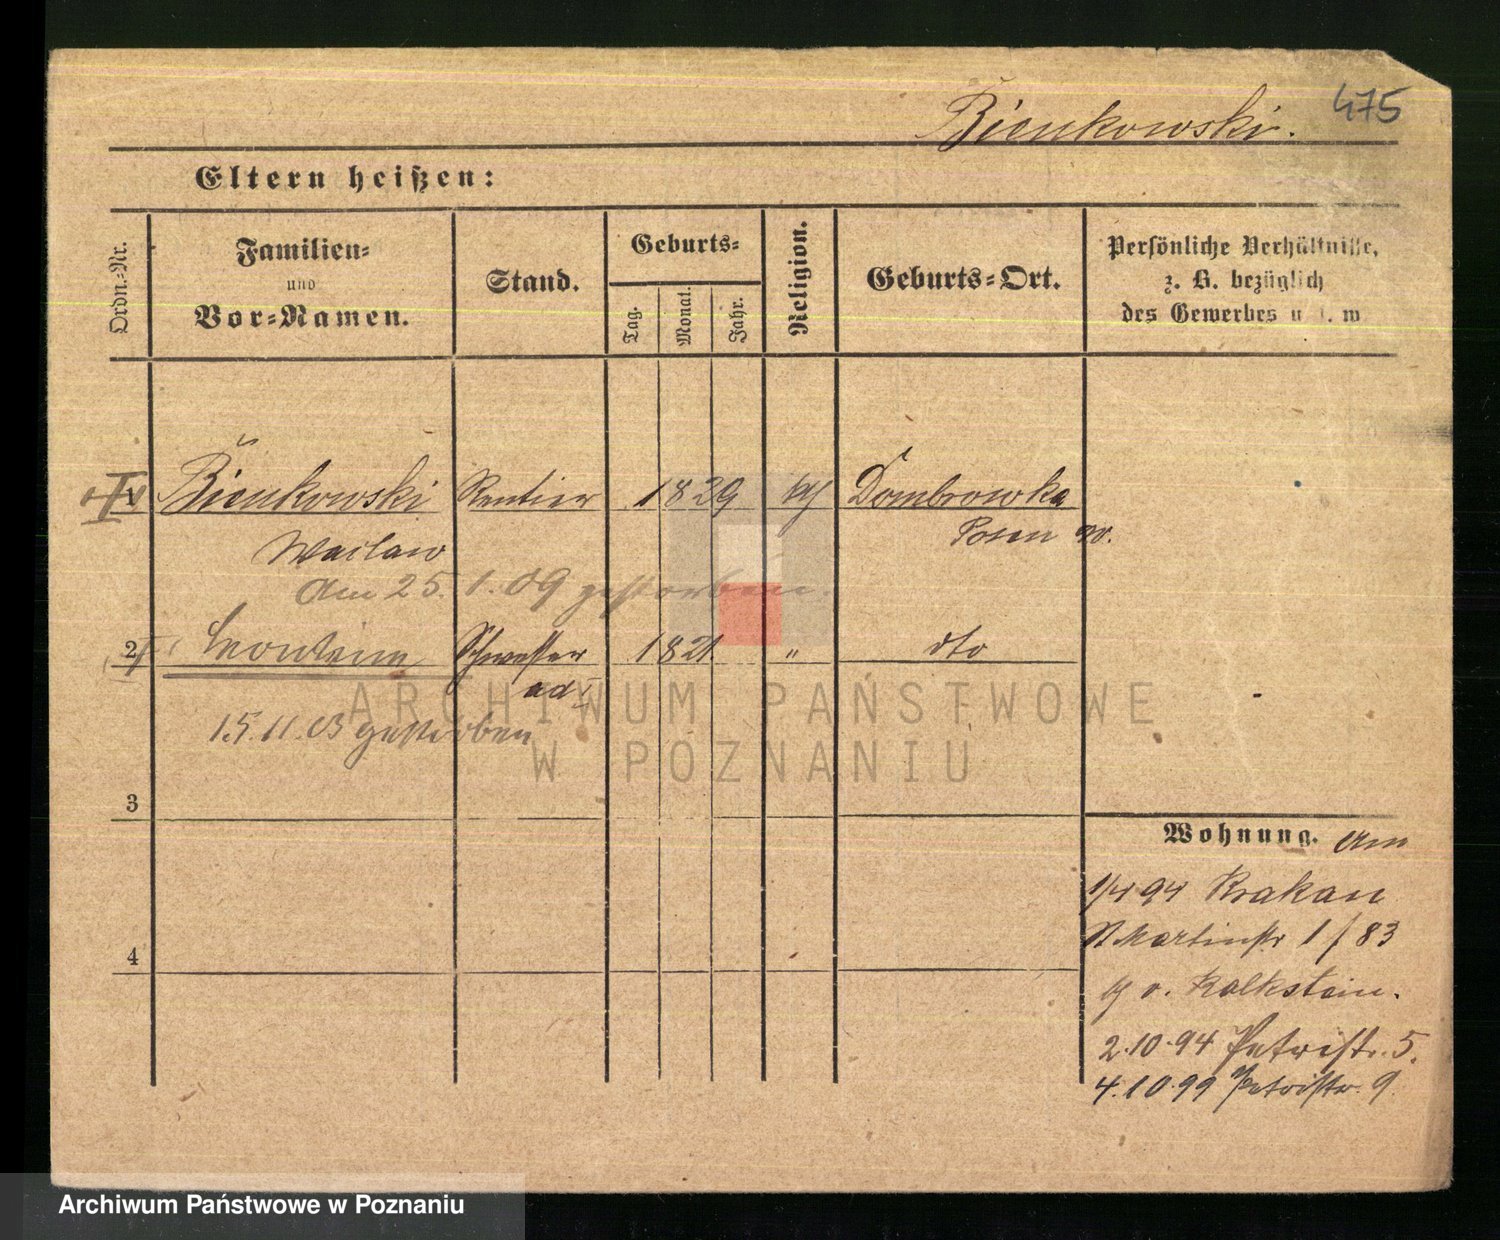 Bienkowski. 475
Eltern heißen:
Ordn.-Nr.
Familien-
und
Vor-Namen.
Stand.
Geburts-
Tag.
Monat.
Jahr.
Religion.
Geburts-Ort.
Persönliche Verhältnisse,
z. B. bezüglich
des Gewerbes u. s. w.
1 Bienkowski Rentier 1829 Dombrowka
Waclaw Posen W.
Am 25. 1. 09 gestorben.
2 Leontine Schwester 1821 " dto
ad I
15.11.03 gestorben
3
4
Wohnung. Am
1/4 94 Krakau
St Martinstr 1/83
v. Kalkstein.
2.10.94 Petristr. 5.
4.10.99 Petristr. 9
ARCHIWUM PAŃSTWOWE
W POZNANIU
Archiwum Państwowe w Poznaniu